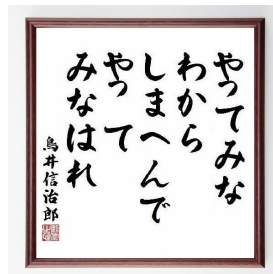 やってみな
わから
しまへんで
やって
みなはれ
鳥井信治郎